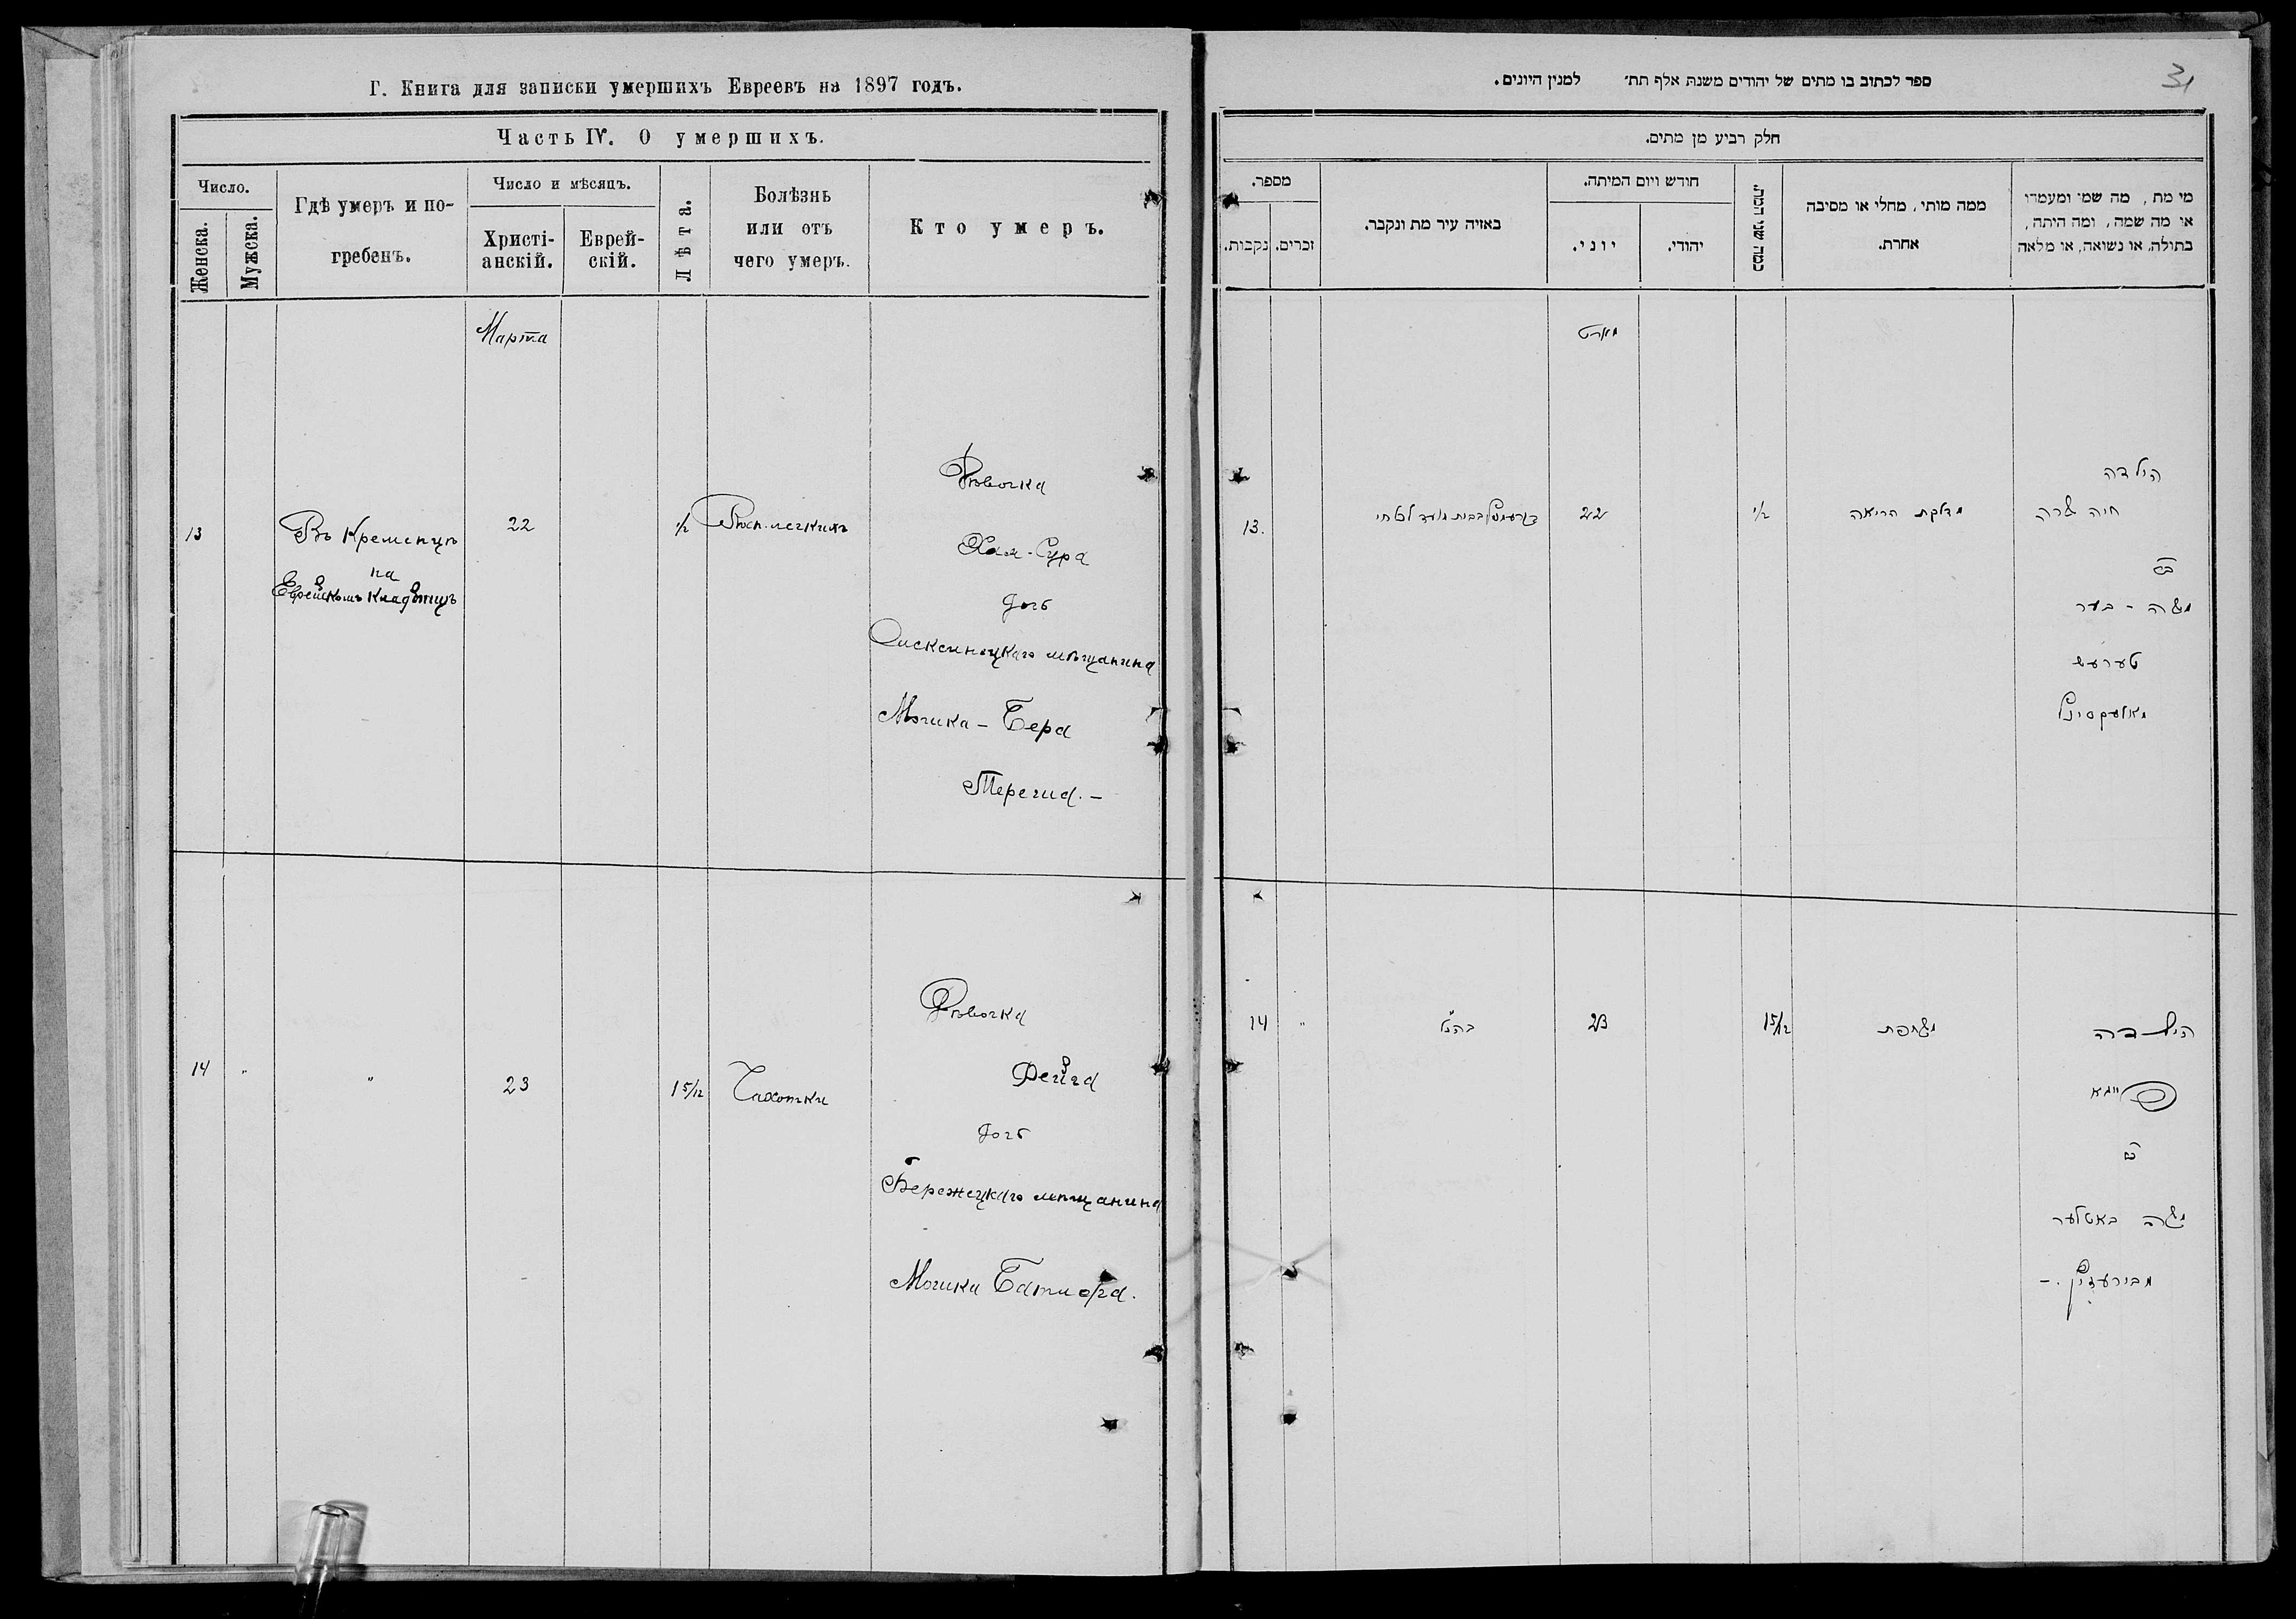 Г. Книга для записки умершихъ Евреевъ на 1897 годъ.
Часть IV. О умершихъ.
Число.
Женска.
Мужска.
Гдѣ умеръ и по-
гребенъ.
Число и мѣсяцъ.
Христі-
анскій.
Еврей-
скій.
Лѣта.
Болѣзнь
или отъ
чего умеръ.
Кто умеръ.
Марта
13
Въ Кременцѣ
на
Еврейскомъ кладбищѣ
22
1/2
Восп. легкихъ
Дѣвочка
Хая-Сура
дочь
мѣщанина
Мошка-Бера
14
"
"
23
1 5/12
Чахотки
Дѣвочка
Фейга
дочь
Бережецкаго мѣщанина
Мошка
ספר לכתוב בו מתים של יהודים משנת אלף תת׳ למנין היונים.
31
חלק רביע מן מתים.
מספר.
נקבות.
זכרים.
באיזה עיר מת ונקבר.
חודש ויום המיתה.
יוני.
יהודי.
כמה שני המת.
ממה מותו, מחלי או מסיבה
אחרת.
מי מת, מה שמו ומעמדו
או מה שמה, ומה היתה,
בתולה, או נשואה, או מלאה
מארט
13.
22
1/2
מדלקת הריאה
הילדה
חיה שרה
בת
משה - בער
טערעש
14
"
בהנ"ל
23
1 5/12
משחפת
הילדה
פייגא
בת
משה באטלער